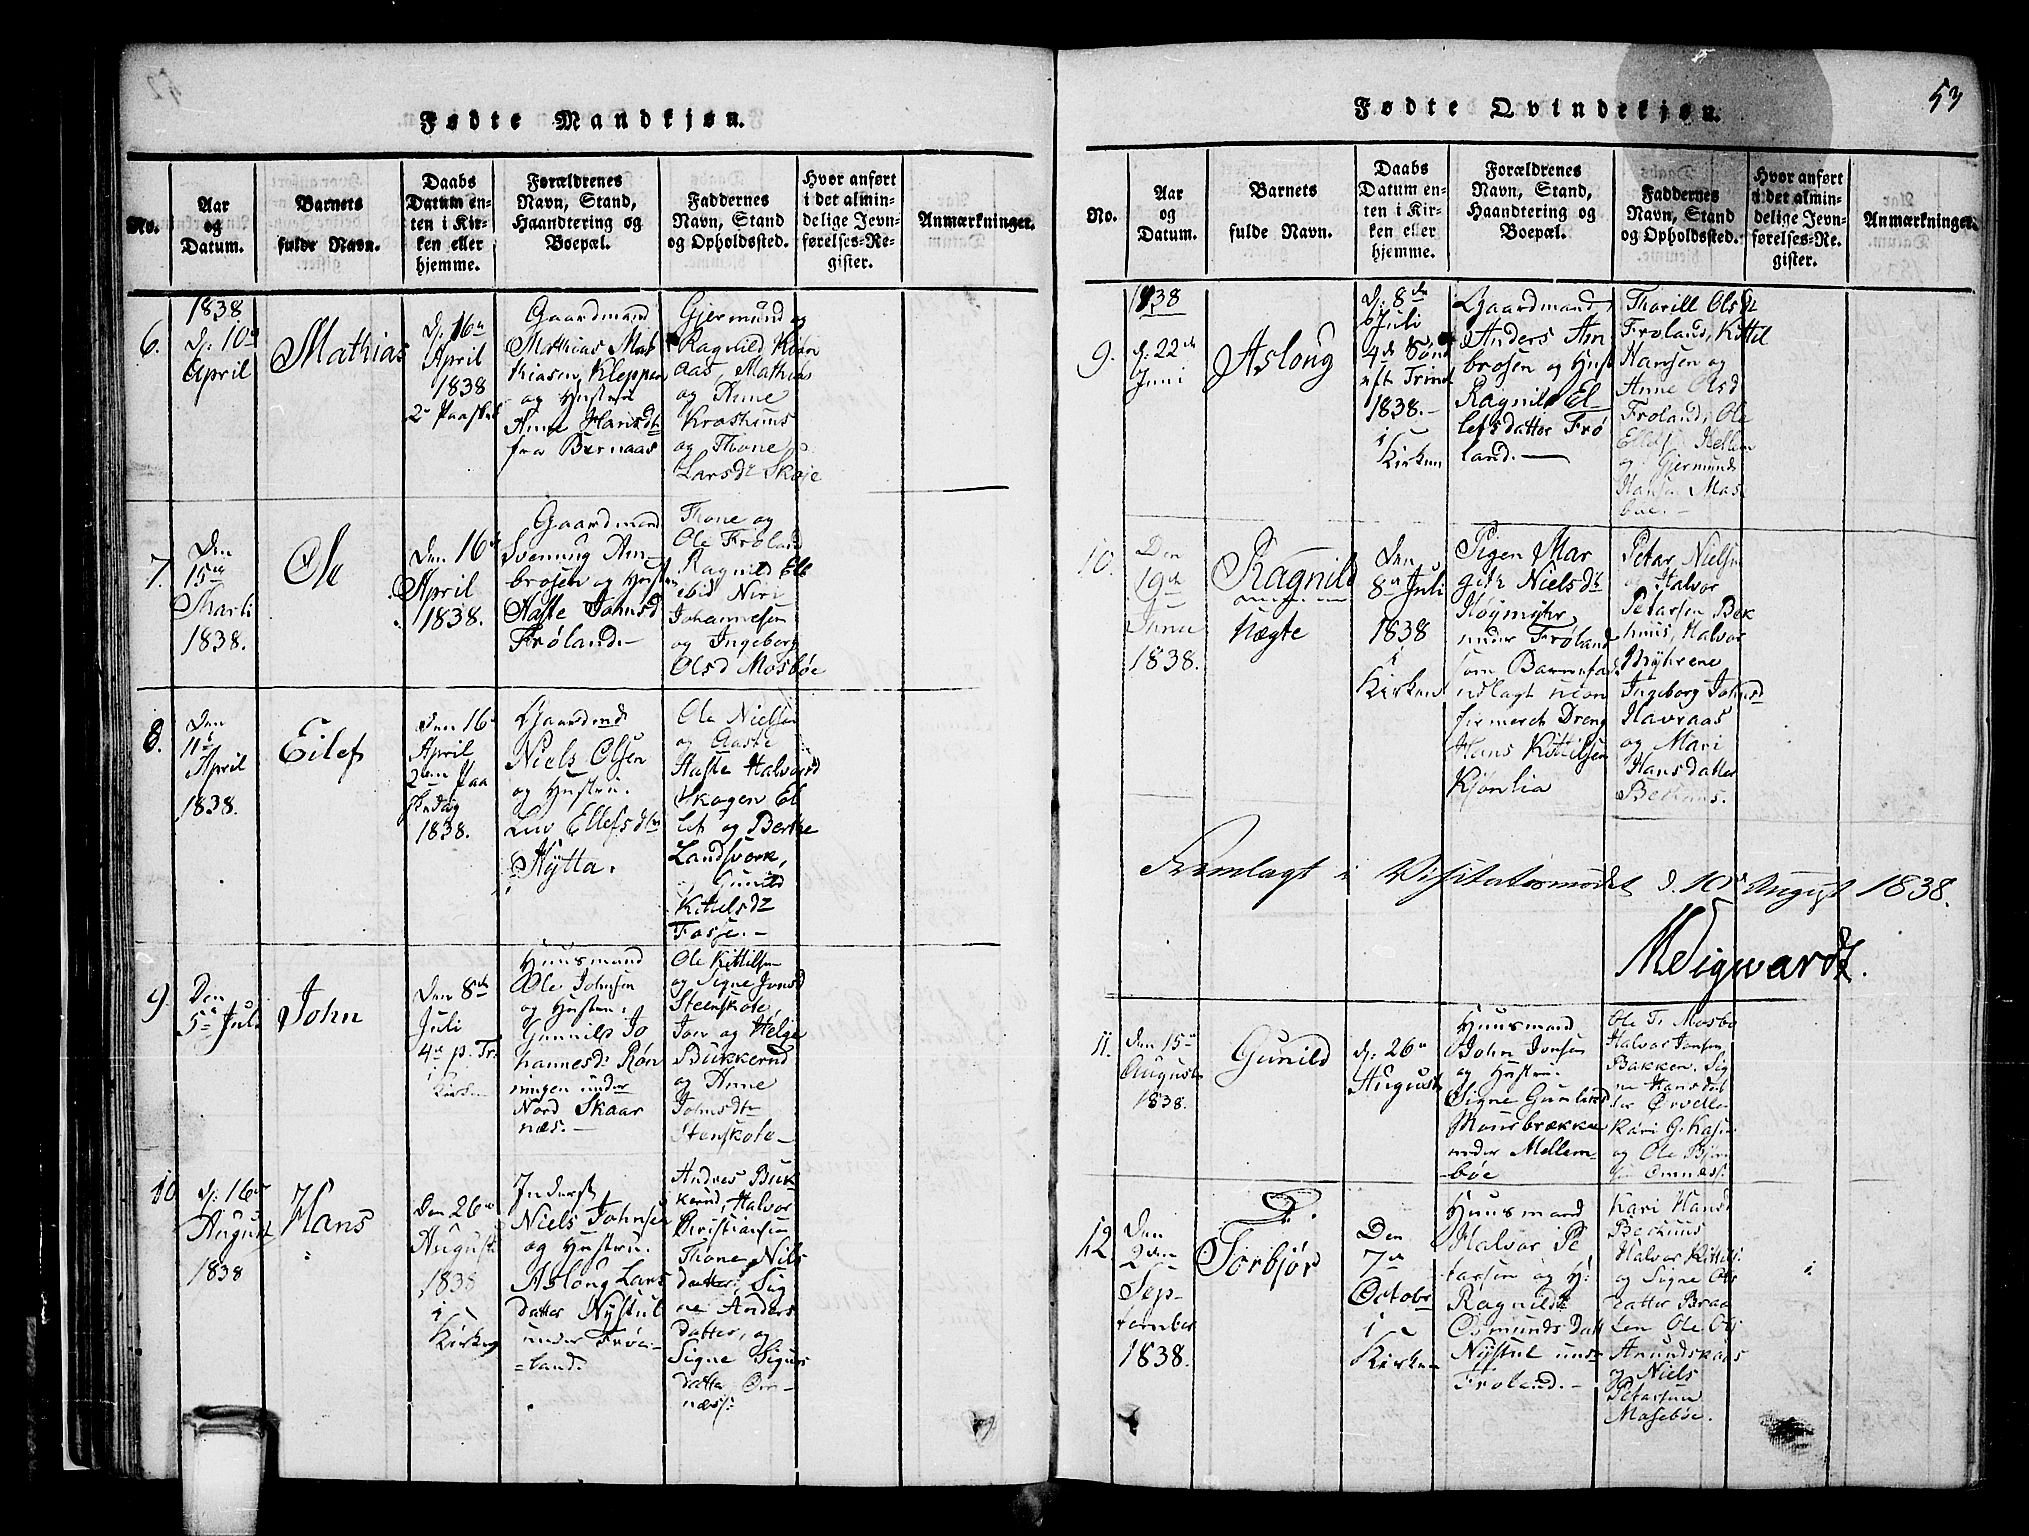 53
Fødte Mandkjøn.
No.
Aar
og
Datum.
Barnets
fulde Navn.
Daabs
Datum en-
ten i Kir-
ken eller
hjemme.
Forældrenes
Navn, Stand,
Haandtering og
Boepæl.
Faddernes
Navn, Stand
og Opholdssted.
Hvor anført
i det almin-
delige Jevn-
førelses-Re-
gister.
Anmærkninger.
6.
1838
d: 10de
April
Mathias
d: 16de
April
1838
2n Paaskd
Gaardmand
Mathias Mat
hiasen, Kleppen
og Hustru
Anne Hansdtr
fra Bernaas
Gjermund og
Ragnild
aas, Mathias
og Anne
Krashuus
og Thone
Larsdr Skoje
7.
Den
15de
1838.
Ole
Den 16de
April
1838.
Gaardmand
Svennug Am-
brosen og Hustru
Aaste Johnsd
Frøland.
Thone og
Ole Frøland
Ragnild Ell
ibid Niri
Johannesen
og Ingeborg
Olsd Mosbøe
8.
Den
11te
April
1838.
Eilef
Den 16de
April
2den Paa
skedag
1838.
Gaardmd
Niels Olsen
og Hustru.
Liv Ellefsdtr
Hytta.
Ole Nielsen
og Aaste
Aaste Halvorsd
Skogen El
lef og Berthe
Landsverk,
Gunild
Kittelsdr
Fosse.
9.
Den
5te Juli
John
Den 8de
Juli
4de p. Tr.
i
Kirken
Huusmand
Ole Johnsen
og Hustru:
Gunnild Jo
hannesd: Røn
ningen under
Nord Skaar
næs.
Ole Kittilsen
og Signe Jonsd
Steenskote,
Jon og Helge
Bukkerud
og Anne
Johnsdtr
Stenskote
10
d: 16de
August
1838
Hans
Den 26de
August
1838
i
Kirken
Inderst
Niels Johnsen
og Hustru.
Aslong Lars
datter Nystul
under Frøe-
land.
Andres Buk
kerud, Halvor
Christiansen
Thone Niels
datter, Sig
ne Anders
datter, og
Signe Sigurs
datter Om-
næss:
Fødte Qvindekjøn.
No.
Aar
og
Datum.
Barnets
fulde Navn.
Daabs
Datum en-
ten i Kir-
ken eller
hjemme.
Forældrenes
Navn, Stand,
Haandtering og
Boepæl.
Faddernes
Navn, Stand
og Opholdssted.
Hvor anført
i det almin-
delige Jevn-
førelses-Re-
gister.
Anmærkninger.
9.
1838
d: 22de
Juni
Aslong
d: 8de
Juli
4de Sönd
eft Trinit
1838.
i
Kirken
Gaardmand
Anders Am
brosen og Hust
Ragnild El
lefsdatter Frø
land.
Thorill Olsd
Froland, Kittil
Hansen og
Anne Olsd
Froland, Ole
Ellefs
og Gjermund
Hansen Mas
bøe.
10.
Den
19de
Juni
1838.
Ragnild
Uægte
Den
8de Juli
1838
i
Kirken
Pigen Mar
gith Nielsdr
Høymyhr
under Frøland
som Barnefad
udlagt
Dreng
Hans Kittilsen
Kjønlia
Petar Nielsen
og Halvor
Petersen Bek
huus, Halvor
Myhrene
Ingeborg Johnsd
Havraas
og Mari
Hansdatter
Bekhuus.
Fremlagt i Visitatsmødet d. 10de August 1838.
11.
den 15de
August
1838.
Gunild
d: 26de
August
Huusmand
John Jonsen
og Hustru.
Signe Gunlixd
Mousbrække
under Mellem-
bøe
Ole T. Mosbø
Halvor Jonsen
Bakken, Sig
ne Hansdat
ter Ørvella
Kari G.
og Ole Bjørn
Omnæss:
12
Den
2den
Sep-
tember
1838.
D.
Torbjør
Den
7de
October
i
Kirken
Huusmand
Halvor Pe
tersen og H:
Ragnild
Osmunds Datt
Nystul und
Froland.
Kari Hansd
Bekhuus
Halvor Kittils:
og Signe Ols
datter Braa
ten Ole Ols
Anundskaas
og Niels
Petersen
Mosebøe.